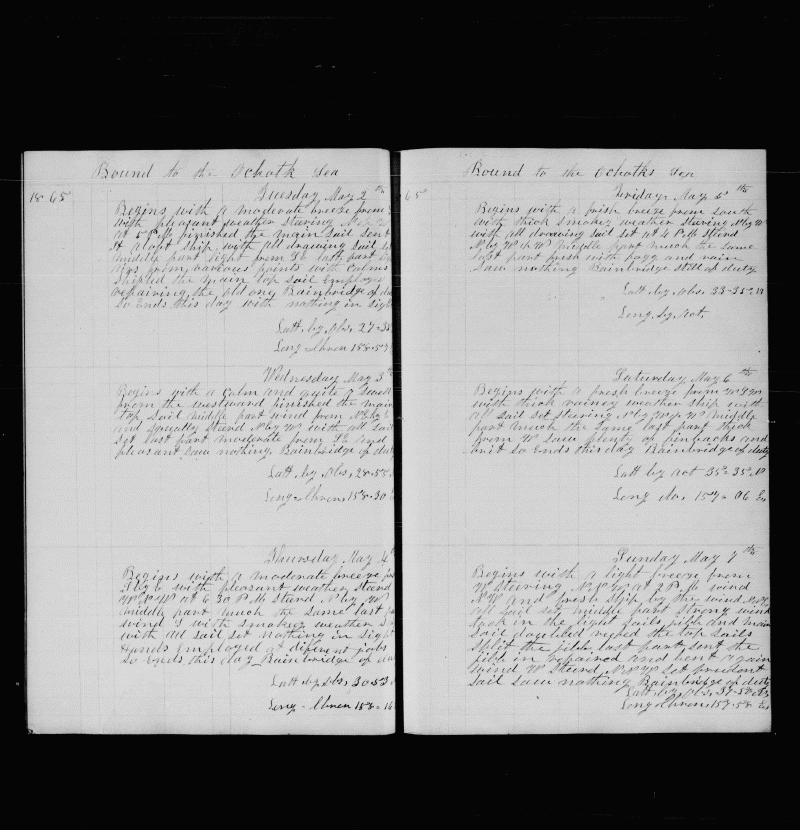 Bound to the Ochotk Sea
18 65
Tuesday May 2th
Begins with a moderate breeze from
with pleasant weather Stering
at 5 PM finished the main sail sent
it aloft ship with All drawing sail set
middle part light from last part
airs from vareious points with calms
shifted the main top sail Employed
repairing the old one Bainbridge of duty
So Ends this day with nothing in sight
Latt. by Obs, 27=38
Long = Chron 158=57
Wednesday May 3th
Begins with a calm and quite a swell
from the westward finished the main
top sail middle part wind from
and squally Steard N by W with all sail
set last part moderate from and
pleasant saw nothing. Bainbridge of duty
Latt. by Obs, 28=58
Long = Chron, 158=30
Thursday May 4th
Begins with a moderate breeze from
with pleasant weather steard
At 6 30 P.M Steard N by W
middle part much the same last part
wind S with smokey weather
with All sail set nothing in sight
Hands Employed at diferent jobs
So Ends this day Bainbridge of duty
Latt by Obs, 30=53
Long = Chron 158=16
Bound to the Ochotks Sea
65
Friday May 5th
Begins with a frish breeze from South
with thick smokey weather Stering N by W
with All drawing sail set At 4 P.M Steard
middle part much the same
last part fresh with fogg and rain
saw nothing Bainbridge still of duty
Latt by Obs. 33=35 N
Long. by Act.
Saturday May 6th
Begins with a fresh breeze from
with thick rainey weather Ship with
all sail set stering middle
part much the same last part thick
from W saw plenty of finbacks and
So Ends this day Bainbridge of duty
Latt by act 35=35 N
Long do, 157=06 E
Sunday May 7th
Begins with a light breeze from
Stering At 2 P.M wind
and fresh Ship by the wind
All sail set middle part strong wind
took in the light sails jibb and main
sail reefed the top sails
Split the jibb last part sent the
jibb in repaired and bent again
wind W Steard set prudent
sail saw nothing Bainbridge of duty
Latt by Obs, 37=58
Long = Chron, 157=58 E